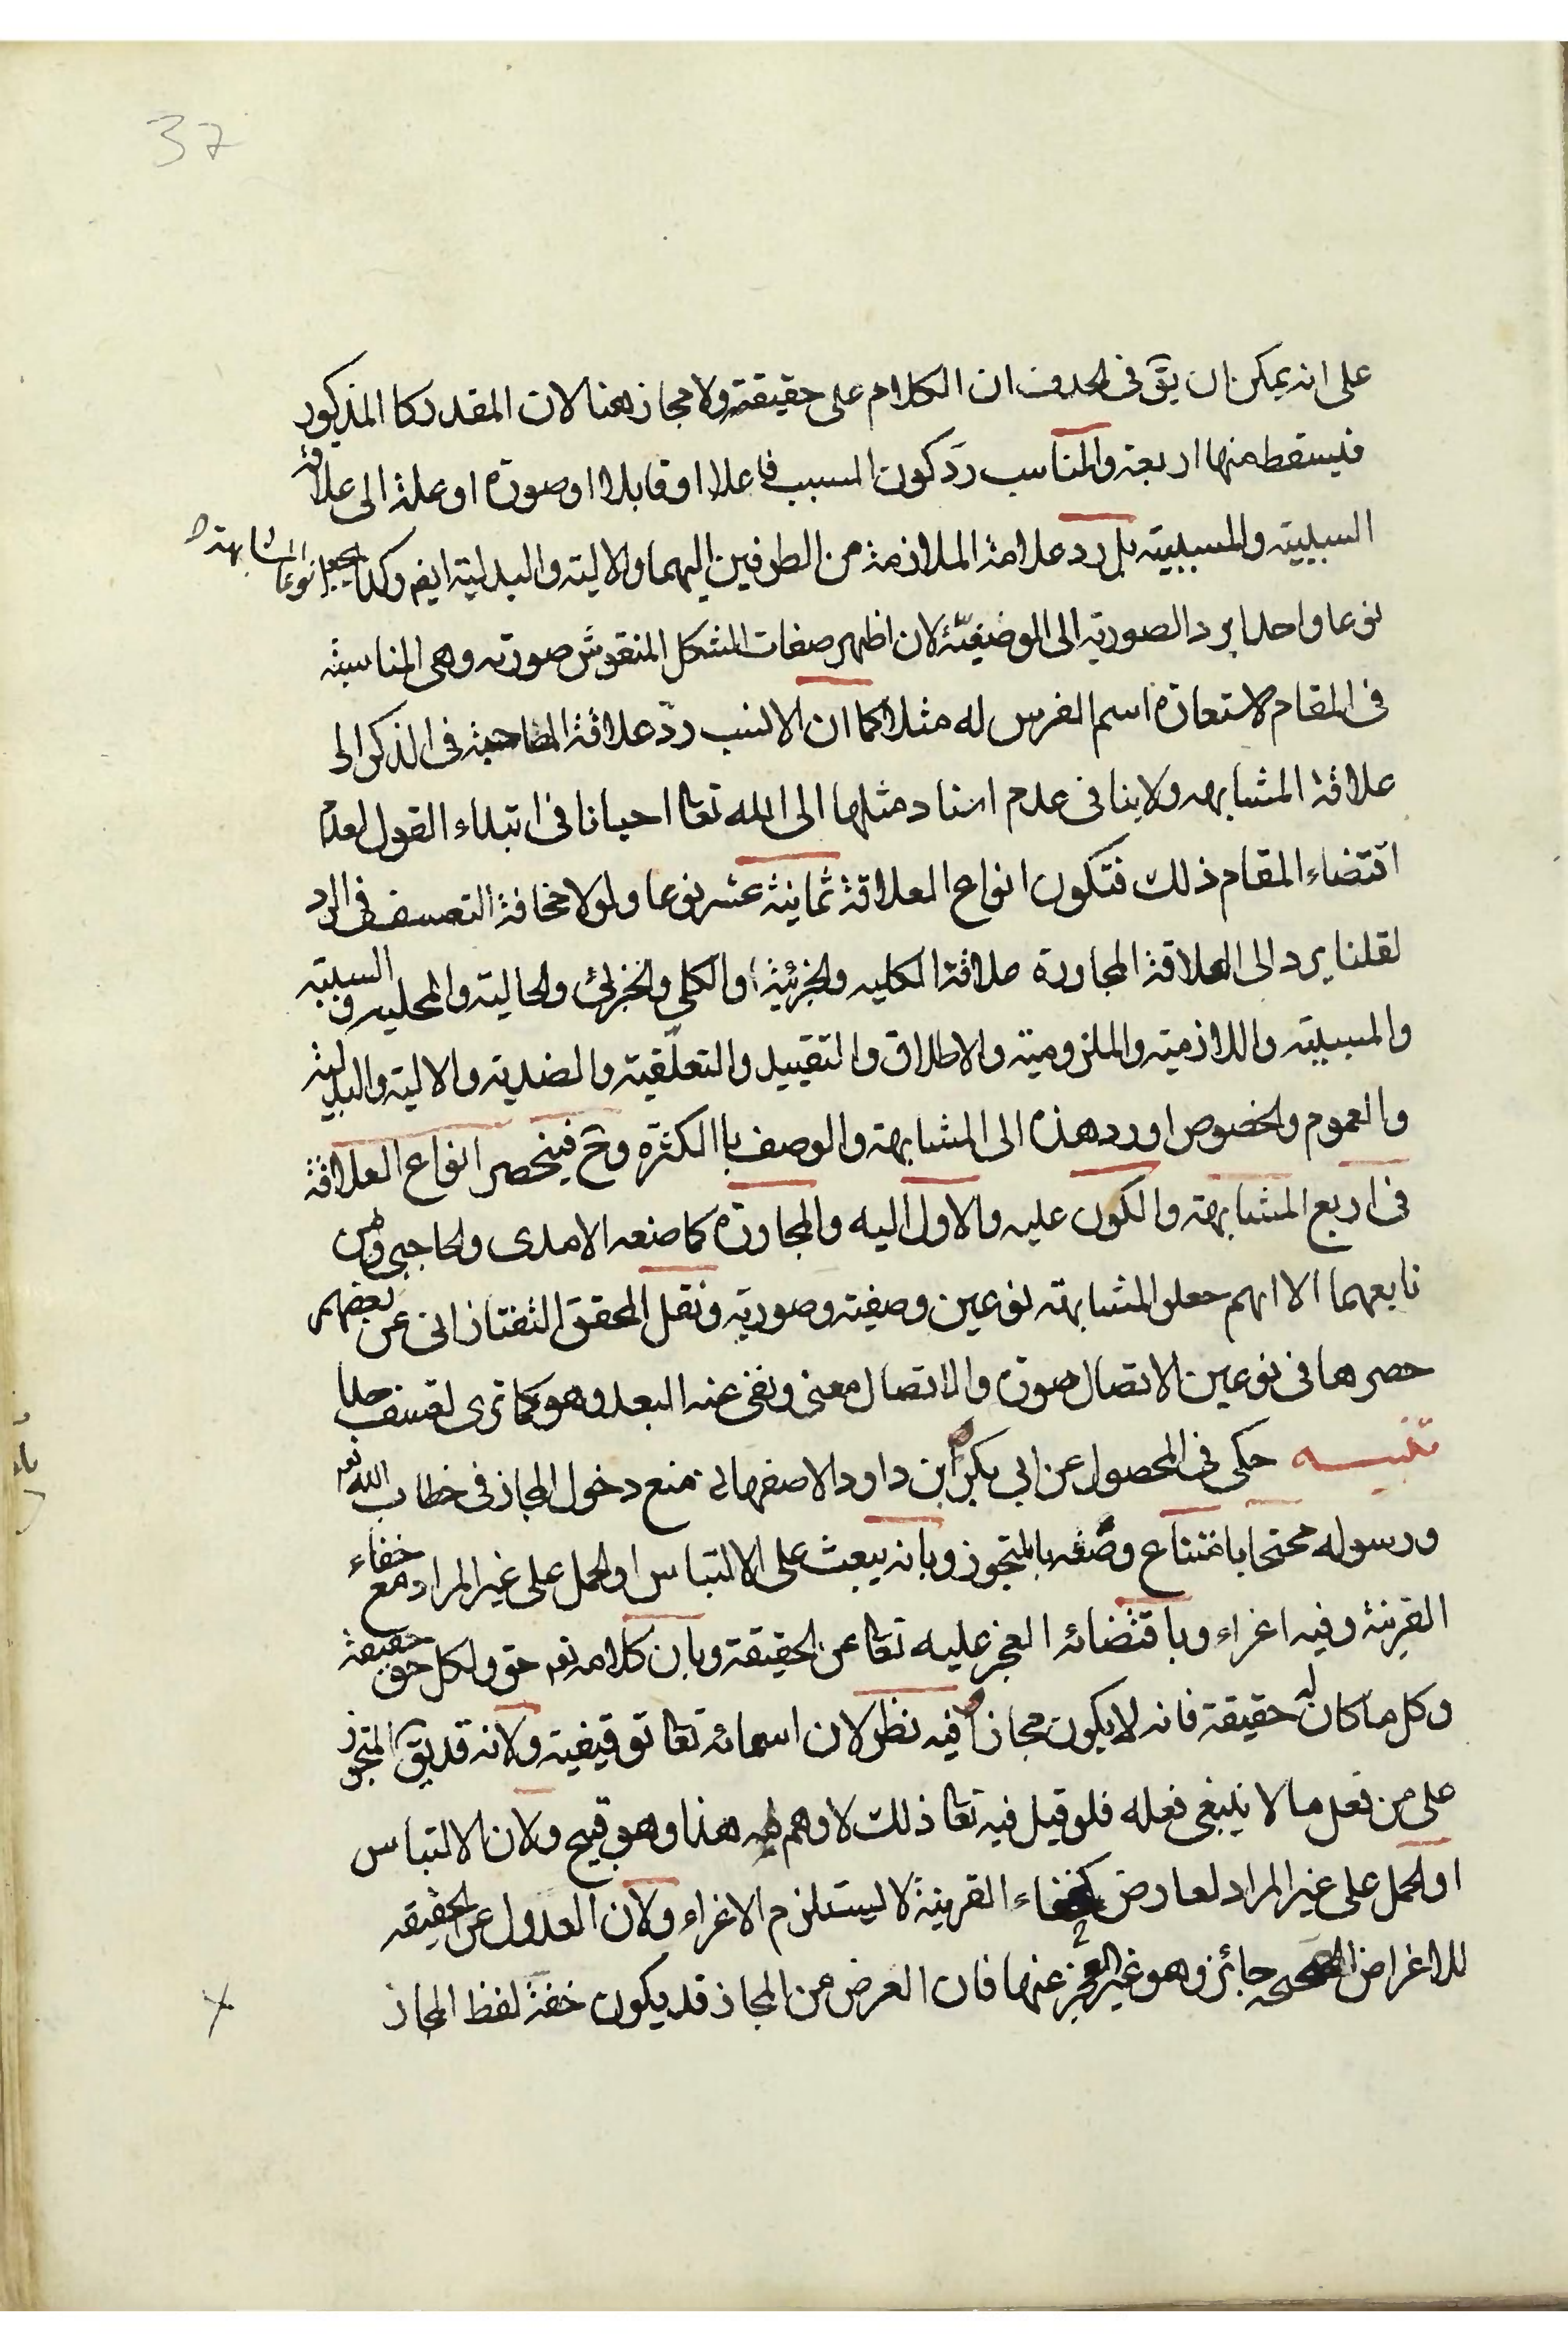 37
على انه يمكن ان يقّ فى الحذف ان الكلام على حقيقته ولا مجاز هنا لان المقدر كا المذكور
فيسقط منها اربعة والمناسب ردّ كون السبب فاعلا او قابلا او صورة او علة الى علاقة
السببية والمسببية بل رد علاقة الملازمة من الطرفين اليهما والالية والبدلية ايض وكذا يجعل انواع المشابهة
نوعا واحدا يرد الصورية الى الوصفيّة لان اظهر صفات الشكل المنقوش صورته وهى المناسبة
فى المقام لاستعارة اسم الفرس له مثلا كما ان الانسب ردّ علاقة المصاحبة فى الذكر الى
علاقة المشابهه ولا ينافى عدم اسناد مثلها الى الله تعا احيانا فى ابتداء القول لعدم
اقتضاء المقام ذلك فتكون انواع العلاقة ثمانية عشر نوعا ولولا مخافة التعسف فى الرد
لقلنا يرد الى العلاقة المجاورة علاقة الكليه والجزئية والكلى والجزئى والحالية والمحليه والسببية
والمسببية واللازمية والملزومية والاطلاق والتقييد والتعلّقية والضدية والالية والبدلية
والعموم والخصوص او رد هذه الى المشابهة والوصف با الكثرة وحّ فينحصر انواع العلاقة
فى اربع المشابهة والكون عليه والاول اليه والمجاورة كما صنعه الامدى والحاجبى ومن
تابعهما الا انهم جعلو المشابهة نوعين وصفية وصورية ونقل المحقق التفتازانى عن بعضهم
حصرها فى نوعين الاتصال صورة والاتصال معنى ونفى عنه البعد وهو كما ترى تعسف جدا
تنبيه حكى فى المحصول عن ابى بكر ابن داود الاصفهانى منع دخول المجاز فى خطاب الله تع
ورسوله محتجا بامتناع وصفه بالمتجوز وبانه يبعث على الالتباس او الحمل على غير المراد مع خفاء
القرينة وفيه اغراء وباقتضائه العجز عليه تعا عن الحقيقة وبان كلامه تع حق ولكل حق حقيقة
وكل ما كان له حقيقة فانه لا يكون مجازا فيه نظر لان اسمائه تعا توقيفية ولانه قد يقّ المتجوز
على من فعل ما لا ينبغى فعله فلو قيل فيه تعا ذلك لاوهم هذا وهو قبيح ولان الالتباس
او الحمل على غير المراد لعارض كخفاء القرينة لا يستلزم الاغراء ولان العدول عن الحقيقه
للاغراض الصحيحه جائز وهو غير العجز عنها فان الغرض من المجاز قد يكون خفة لفظ المجاز